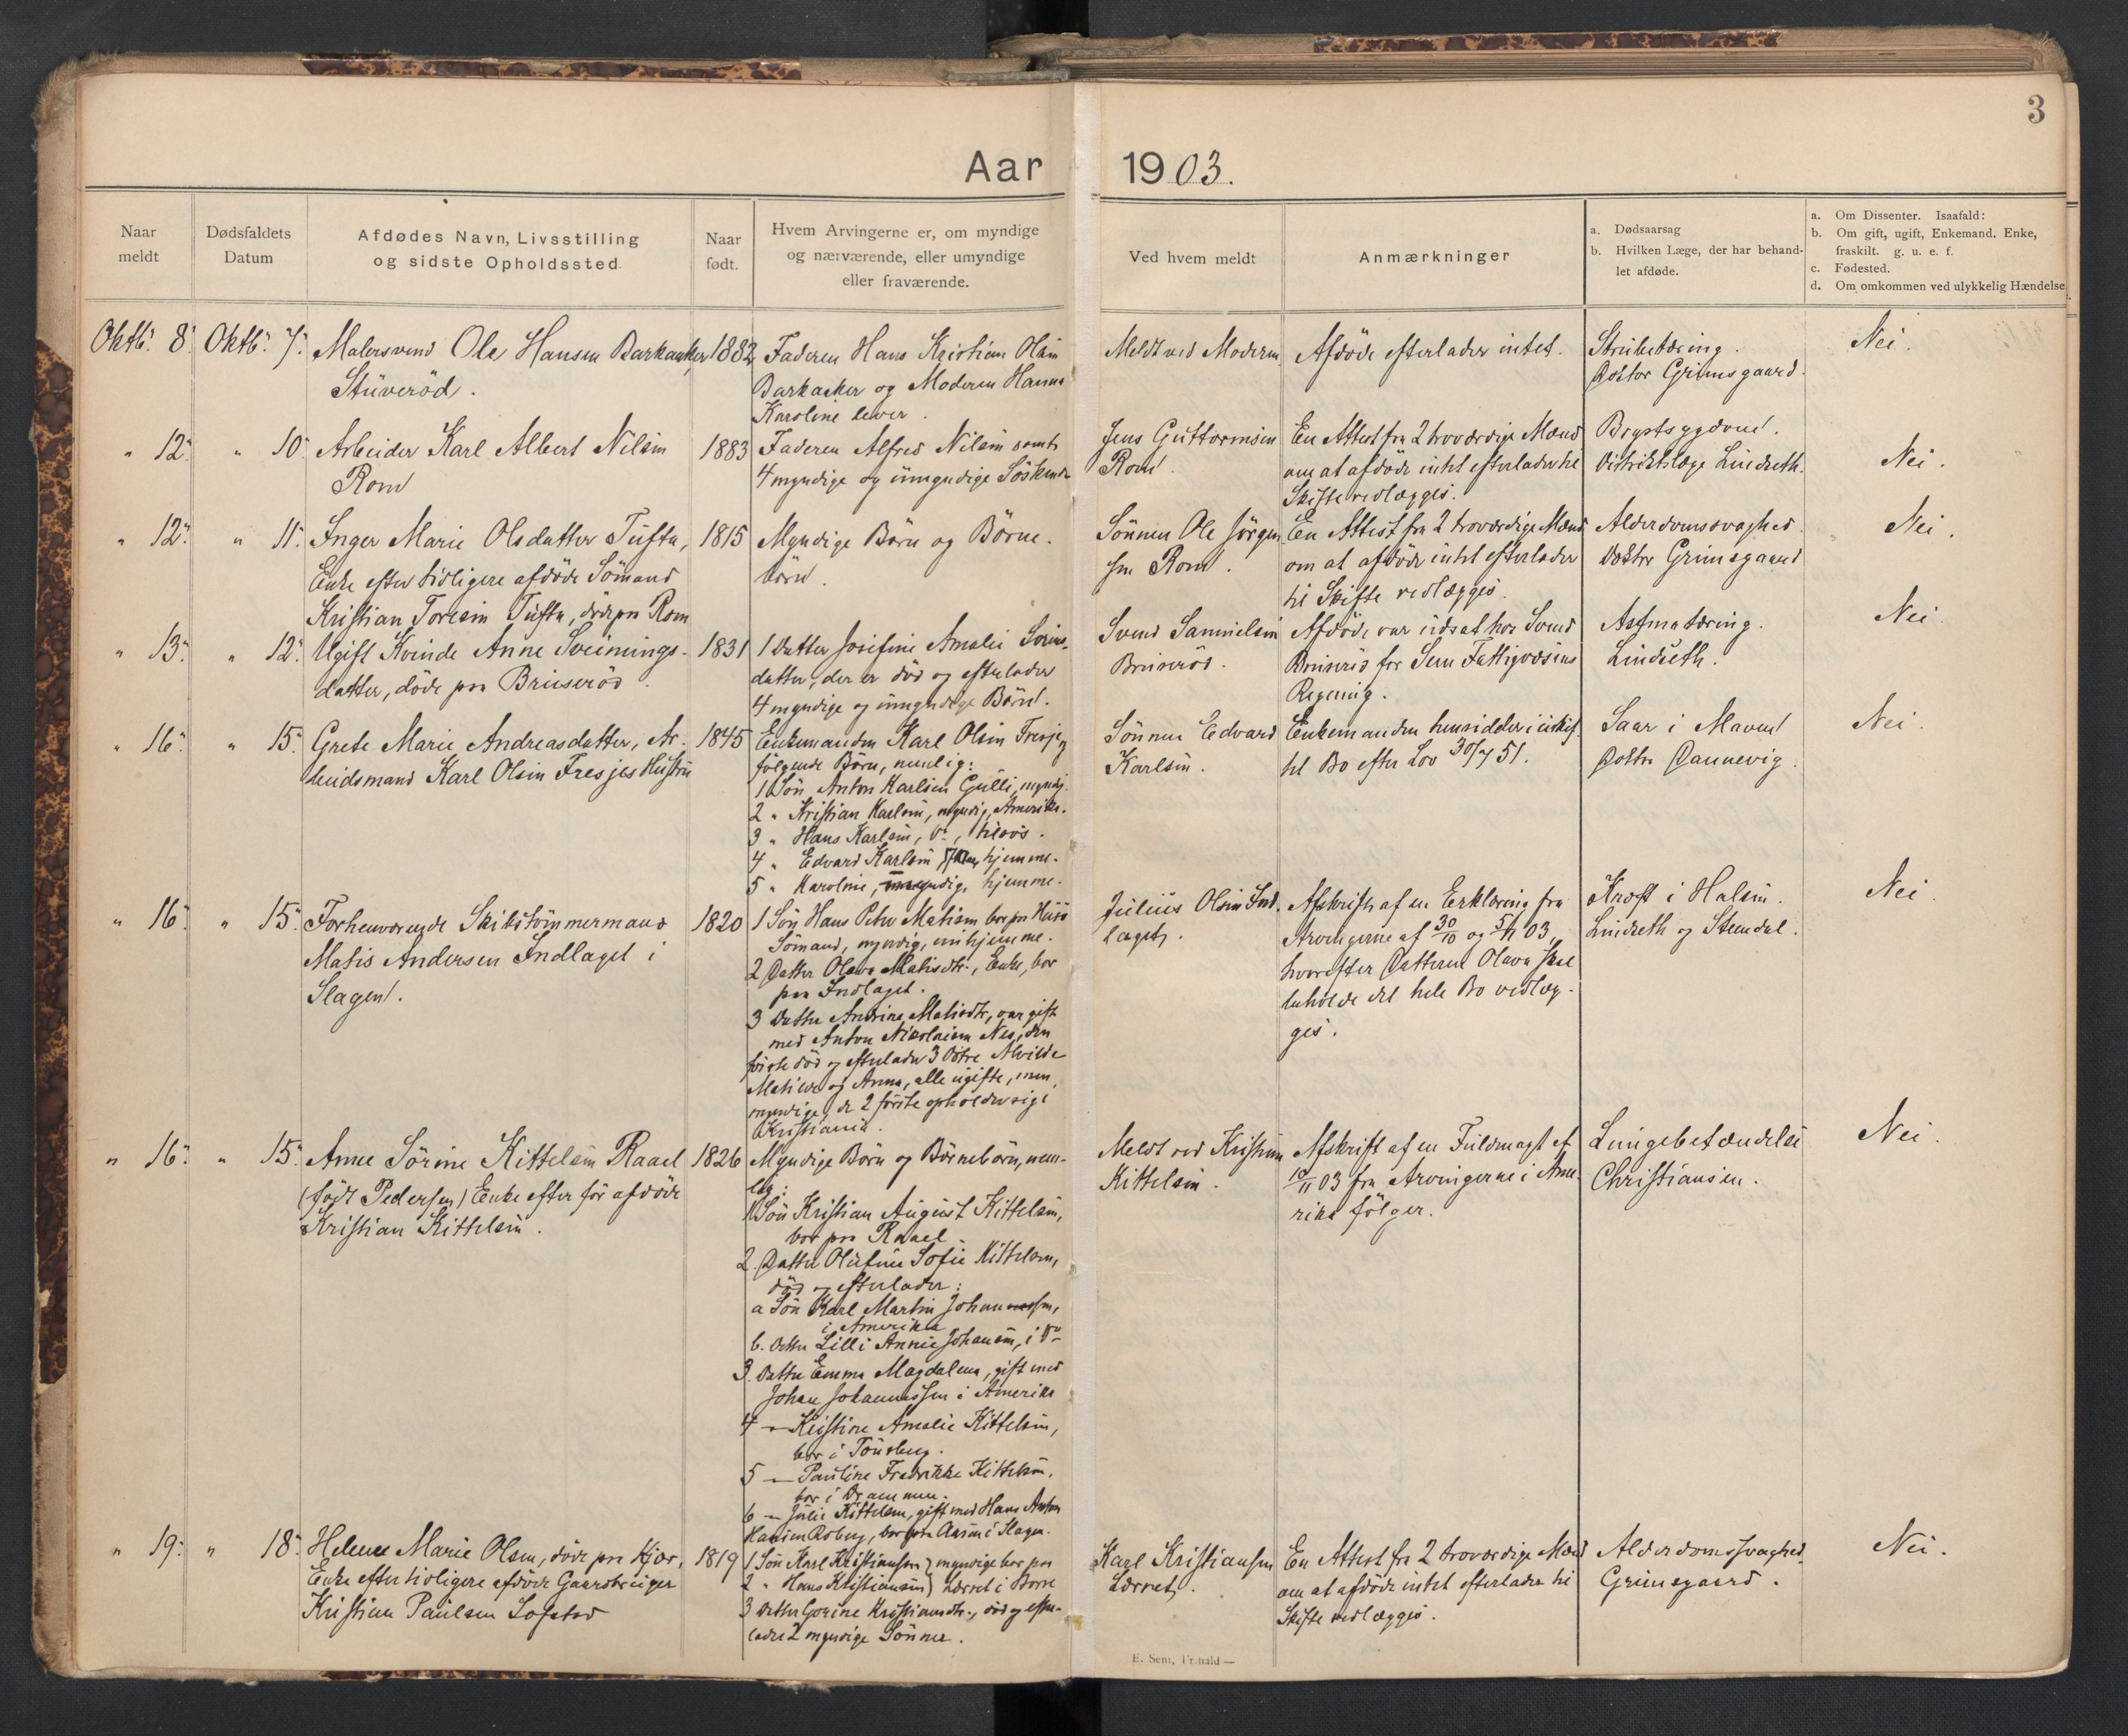 3
Aar 1903.
Naar meldt
Dødsfaldets Datum
Afdødes Navn, Livsstilling
og sidste Opholdssted.
Naar født.
Hvem Arvingerne er, om myndige
og nærværende, eller umyndige
eller fraværende.
Ved hvem meldt
Anmærkninger
a. Dødsaarsag
b. Hvilken Læge, der har behand-
let afdøde.
a. Om Dissenter. Isaafald:
b. Om gift, ugift, Enkemand. Enke,
fraskilt. g. u. e. f.
c. Fødested.
d. Om omkommen ved ulykkelig Hændelse
Oktb. 8. Oktb. 7. Malersvend Ole Hansen Barkaaker
Stüverød.
1882
Faderen Hans Kristian Olsen
Barkaaker og Moderen Hanna
Karoline lever.
Meldt ved Moderen
Afdøde efterlader intet.
Strubetæring.
Doktor Grimsgaard.
Nei.
" 12. " 10. Arbeider Karl Albert Nilsen
Rom
1883
Faderen Alfred Nilsen samt
4 myndige og ümyndige Söskende
Jens Guttormsen
Rom.
En Attest fra 2 troværdige Mænd
om at afdöde intet efterlader til
Skifte vedlægges.
Brystsygdom.
Distriktslæge Lindseth.
Nei.
" 12. " 11. Inger Marie Olsdatter Tufta,
Enke efter tidligere afdöde Sömand
Kristian Toresen Tufta, döde paa Rom
1815
Myndige Börn og Börne-
börn.
Sönnen Ole Jörgen
sen Rom.
En Attest fra 2 troværdige Mænd
om at afdöde intet efterlader
til Skifte vedlægges.
Alderdomssvaghed.
Doktor Grimsgaard
Nei.
" 13. " 12. Ugift Kvinde Anne Sveinings-
datter, döde paa Bruseröd.
1831
1 Datter Josefine Amalie
datter, der er död og efterlader
4 myndige og ümyndige Börn.
Svend Samuelsen
Bruseröd.
Afdöde var udsat hos Svend
Bruseröd for Sem Fattigvæsens
Regning.
Astmatæring.
Lindseth.
Nei.
" 16. " 15. Grete Marie Andreasdatter, Ar-
beidsmand Karl Olsen Fresjes Hustru
1845
Enkemanden Karl Olsen Fresje og
følgende Börn, nemlig:
1 Sön Anton Karlsen Gulli, myndig.
2 " Kristian Karlsen, myndig, Amerika.
3 " Hans Karlsen, do, tilsös.
4 " Edvard Karlsen, hjemme.
5 " Karoline, hjemme.
Sönnen Edvard
Karlsen.
Enkemanden hensidder i uskif-
tet Bo efter Lov 30/7 51.
Saar i Maven
Doktor Dannevig.
Nei.
" 16. " 15. Forhenværende Skibstömmermand
Matis Andersen Indlaget i
Slagen.
1820
1 Sön Hans Peter Matisen bor paa
Sömand, myndig, hjemme.
2 Datter Olava Matisdtr., Enke, bor
paa Indlaget.
3 Datter Andrine Matisdtr, var gift
med Anton Nikolaisen Nes, den
förste död og efterlader 3 Dötre Alvilde
Matilde og Anna, alle ugifte, men
myndige, de 2 förste opholder sig i
Kristiania.
Julius Olsen Ind-
laget.
Afskrift af en Erklæring fra
Arvingerne af 30/10 og 5/11 03,
hvorefter Datteren Olava skal
beholde det hele Bo vedlæg-
ges.
Kræft i Halsen.
Lindseth og Stendal.
Nei.
" 16. " 15. Anne Sörine Kittelsen Raael
(født Pedersen) Enke efter för afdöde
Kristian Kittelsen.
1826
Myndige Börn og Börnebörn, nem-
lig:
1 Sön Kristian August Kittelsen,
bor paa Raael
2 Datter Olufine Sofie Kittelsen,
död og efterlader:
a Sön Karl Martin Johannessen,
i Amerika
b. Datter Lilli Annie Johansen, i do
3. Datter Emma Magdalena, gift med
Johan Johannessen i Amerika
4 — Kristine Amalie Kittelsen,
bor i Tönsberg.
5 — Pauline Fredrikke Kittelsen,
bor i Drammen.
6 — Julie Kittelsen, gift med Hans Anton
Hansen Roberg, bor paa Aasen i Slagen.
Meldt ved Kristian
Kittelsen.
Afskrift af en Fuldmagt af
10/11 03 fra Arvingerne i Ame-
rika fölger.
Lungebetændelse
Christiansen.
Nei.
" 19. " 18. Helene Marie Olsen, döde paa Kjær,
Enke efter tidligere afdöde Gaardbruger
Kristian Paulsen Lofstad
1819
1 Sön Karl Kristiansen } myndige bor paa
2 " Hans Kristiansen } Lærret i Borre
3 Datter Gorine Kristiansdtr., död og efter-
lader 2 myndige Sönner.
Karl Kristiansen
Lærret.
En Attest fra 2 troværdige Mænd
om at afdöde intet efterlader til
Skifte vedlægges.
Alderdomssvaghed.
Grimsgaard.
Nei.
E. Sem, Fr.hald —